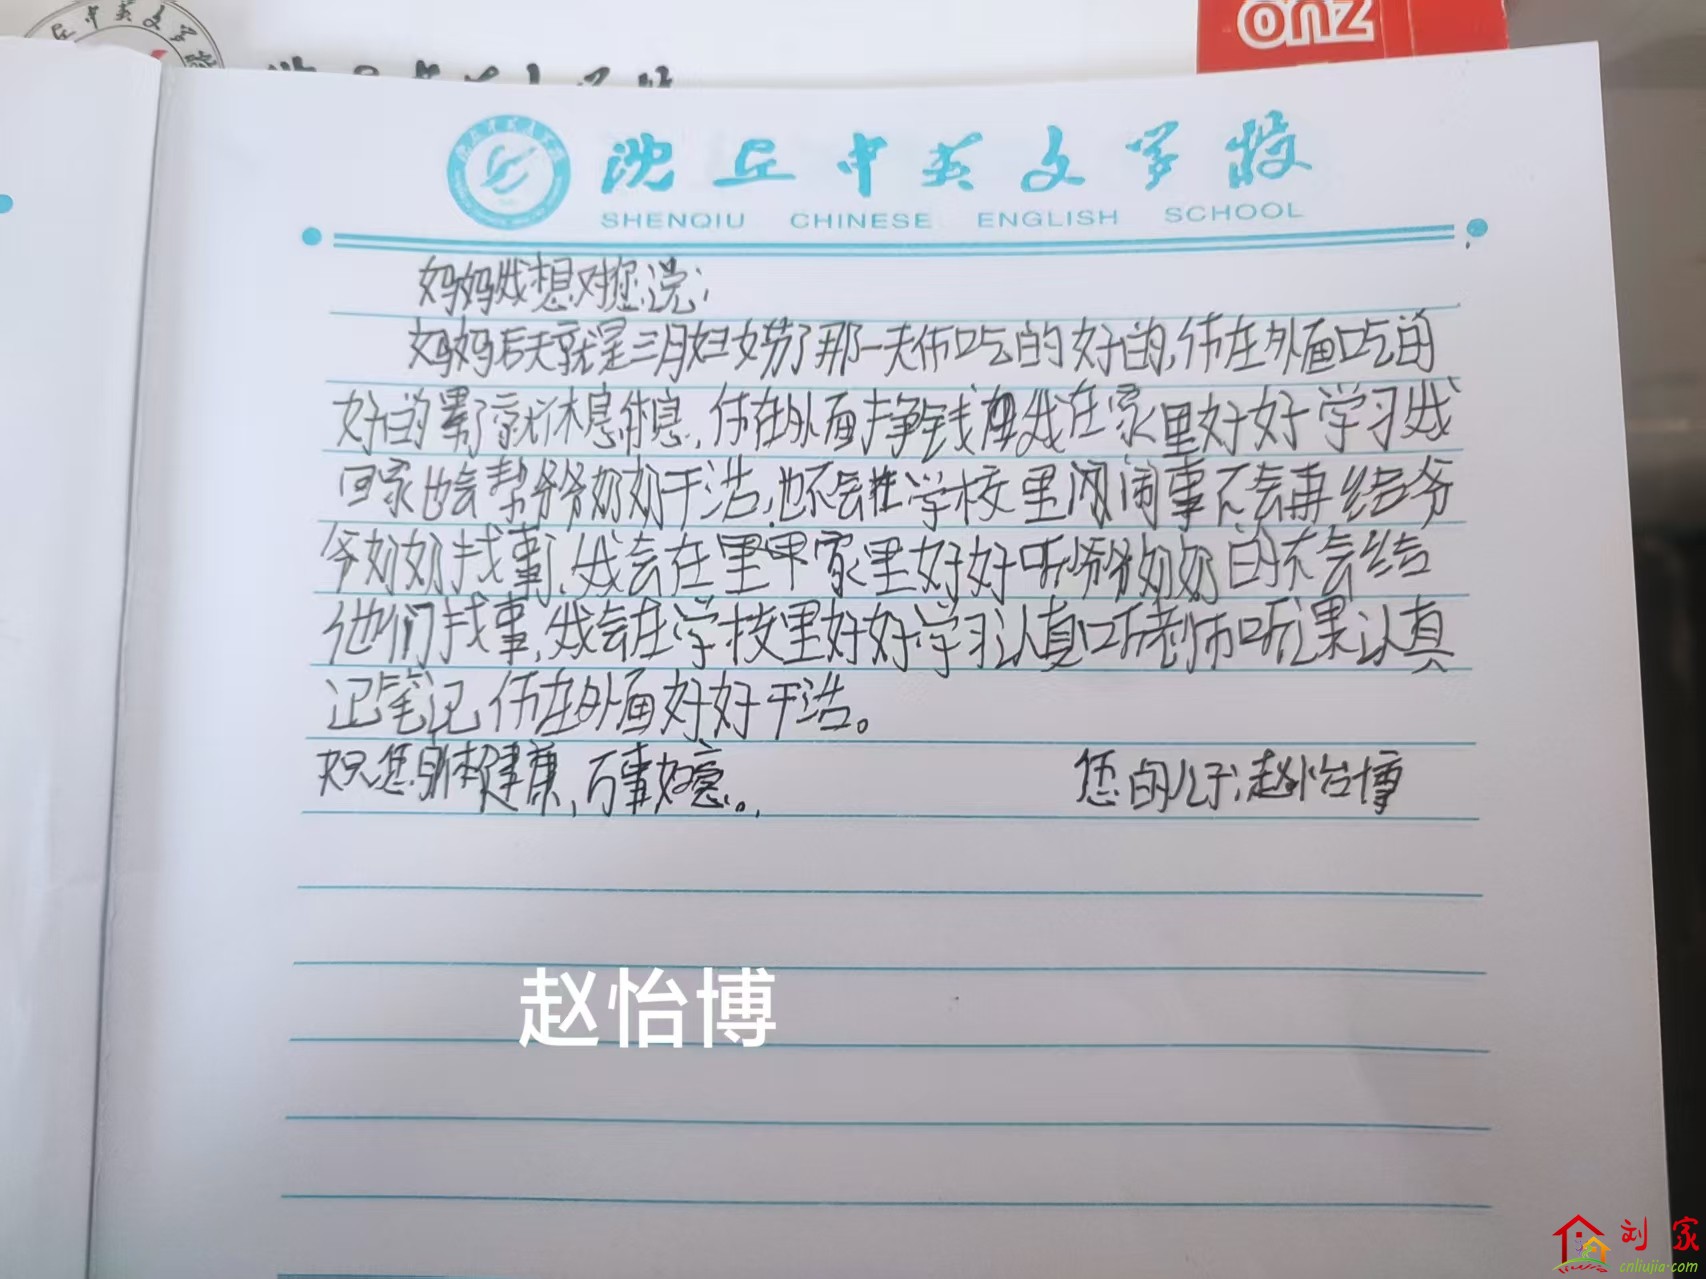 ZUO
沈丘中英文学校
SHENQIU CHINESE ENGLISH SCHOOL
妈妈我想对您说:
妈妈后天就是三月妇女节了那一天你吃的好的,你在外面吃的
好的累了就休息休息,你在外面挣钱我在家里好好学习我
回家也会帮爷爷奶奶干活,也不会在学校里闹事不会再给爷
爷奶奶找事,我会在家里好好听爷爷奶奶的不会给
他们找事,我会在学校里好好学习认真听老师听课认真
记笔记,你在外面好好干活。
祝您身体健康,万事如意。 您的儿子:赵怡博
赵怡博
刘家
cnliujia.com